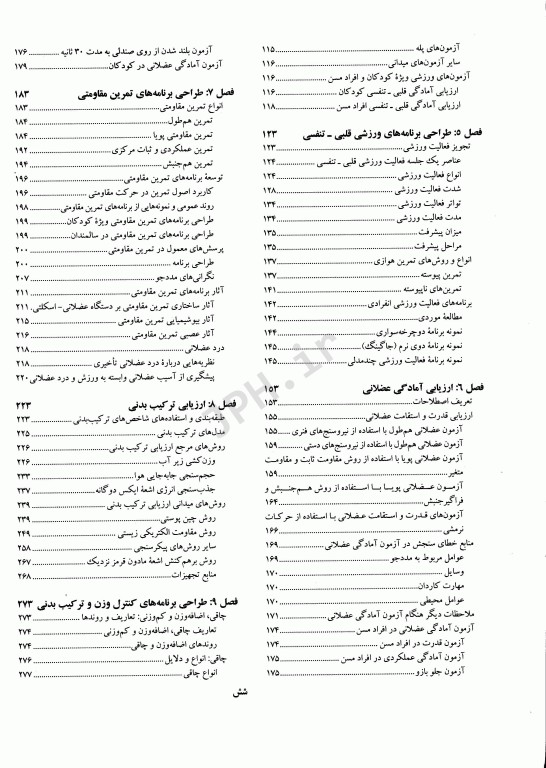 آزمون‌های پله ... ۱۱۵
سایر آزمون‌های میدانی ... ۱۱۶
آزمون‌های ورزشی ویژهٔ کودکان و افراد مسن ... ۱۱۶
ارزیابی آمادگی قلبی ـ تنفسی کودکان ... ۱۱۶
ارزیابی آمادگی قلبی ـ تنفسی افراد مسن ... ۱۱۸
فصل ۵: طراحی برنامه‌های ورزشی قلبی ـ تنفسی ۱۲۳
تجویز فعالیت ورزشی ... ۱۲۳
عناصر یک جلسه فعالیت ورزشی قلبی ـ تنفسی ... ۱۲۴
انواع فعالیت ورزشی ... ۱۲۴
شدت فعالیت ورزشی ... ۱۲۸
تواتر فعالیت ورزشی ... ۱۳۴
مدت فعالیت ورزشی ... ۱۳۴
میزان پیشرفت ... ۱۳۵
مراحل پیشرفت ... ۱۳۵
انواع و روش‌های تمرین هوازی ... ۱۳۷
تمرین پیوسته ... ۱۳۷
تمرین‌های ناپیوسته ... ۱۴۱
برنامه‌های فعالیت ورزشی انفرادی ... ۱۴۲
مطالعهٔ موردی ... ۱۴۲
نمونه برنامهٔ دوچرخه‌سواری ... ۱۴۴
نمونه برنامهٔ دوی نرم (جاگینگ) ... ۱۴۵
نمونه برنامهٔ فعالیت ورزشی چندمدلی ... ۱۴۵
فصل ۶: ارزیابی آمادگی عضلانی ۱۵۳
تعریف اصطلاحات ... ۱۵۳
ارزیابی قدرت و استقامت عضلانی ... ۱۵۵
آزمون عضلانی هم‌طول با استفاده از نیروسنج‌های فنری ... ۱۵۵
آزمون عضلانی هم‌طول با استفاده از نیروسنج‌های دستی ... ۱۵۹
آزمون عضلانی پویا با استفاده از روش مقاومت ثابت و مقاومت
متغیر ... ۱۵۹
آزمـون عضـلانی پویـا بـا اسـتفاده از روش هم‌جنـبش و
فراگیرجنبش ... ۱۶۴
آزمون‌های قـدرت و استقامت عـضلانی بـا استفاده از حرکـات
نرمشی ... ۱۶۶
منابع خطای سنجش در آزمون آمادگی عضلانی ... ۱۶۹
عوامل مربوط به مددجو ... ۱۶۹
وسایل ... ۱۷۰
مهارت کاردان ... ۱۷۰
عوامل محیطی ... ۱۷۰
ملاحظات دیگر هنگام آزمون آمادگی عضلانی ... ۱۷۱
آزمون آمادگی عضلانی در افراد مسن ... ۱۷۴
آزمون قدرت در افراد مسن ... ۱۷۴
آزمون آمادگی عملکردی در افراد مسن ... ۱۷۵
آزمون جلو بازو ... ۱۷۵
آزمون بلند شدن از روی صندلی به مدت ۳۰ ثانیه ... ۱۷۶
آزمون آمادگی عضلانی در کودکان ... ۱۷۹
فصل ۷: طراحی برنامه‌های تمرین مقاومتی ۱۸۳
انواع تمرین مقاومتی ... ۱۸۳
تمرین هم‌طول ... ۱۸۴
تمرین مقاومتی پویا ... ۱۸۴
تمرین عملکردی و ثبات مرکزی ... ۱۹۲
تمرین هم‌جنبش ... ۱۹۴
توسعهٔ برنامه‌های تمرین مقاومتی ... ۱۹۶
کاربرد اصول تمرین در حرکت مقاومتی ... ۱۹۶
روند عمومی و نمونه‌هایی از برنامه‌های تمرین مقاومتی ... ۱۹۸
طراحی برنامه‌های تمرین مقاومتی ویژهٔ کودکان ... ۱۹۹
طراحی برنامه‌های تمرین مقاومتی در سالمندان ... ۱۹۹
پرسش‌های معمول در تمرین مقاومتی ... ۲۰۰
طراحی برنامه ... ۲۰۰
نگرانی‌های مددجو ... ۲۰۷
آثار برنامه‌های تمرین مقاومتی ... ۲۱۱
آثار ساختاری تمرین مقاومتی بر دستگاه عضلانی- اسکلتی. ۲۱۱
آثار بیوشیمیایی تمرین مقاومتی ... ۲۱۵
آثار عصبی تمرین مقاومتی ... ۲۱۶
درد عضلانی ... ۲۱۸
نظریه‌هایی دربارهٔ درد عضلانی تأخیری ... ۲۱۸
پیشگیری از آسیب عضلانی وابسته به ورزش و درد عضلانی ۲۲۰
فصل ۸: ارزیابی ترکیب بدنی ۲۲۳
طبقه‌بندی و استفاده‌های شاخص‌های ترکیب‌بدنی ... ۲۲۳
مدل‌های ترکیب بدنی ... ۲۲۵
روش‌های مرجع ارزیابی ترکیب بدنی ... ۲۲۶
وزن‌کشی زیر آب ... ۲۲۶
حجم‌سنجی جابه‌جایی هوا ... ۲۳۳
جذب‌سنجی انرژی اشعهٔ ایکس دوگانه ... ۲۳۷
روش‌های میدانی ارزیابی ترکیب بدنی ... ۲۳۹
روش چین پوستی ... ۲۳۹
روش مقاومت الکتریکی زیستی ... ۲۴۹
سایر روش‌های پیکرسنجی ... ۲۵۸
روش برهم‌کنش اشعهٔ مادون قرمز نزدیک ... ۲۶۷
منابع تجهیزات ... ۲۶۸
فصل ۹: طراحی برنامه‌های کنترل وزن و ترکیب بدنی ۲۷۳
چاقی، اضافه‌وزن و کم‌وزنی: تعاریف و روندها ... ۲۷۳
تعاریف چاقی، اضافه‌وزن و کم‌وزنی ... ۲۷۴
روندهای اضافه‌وزن و چاقی ... ۲۷۴
چاقی: انواع و دلایل ... ۲۷۶
انواع چاقی ... ۲۷۷
شش